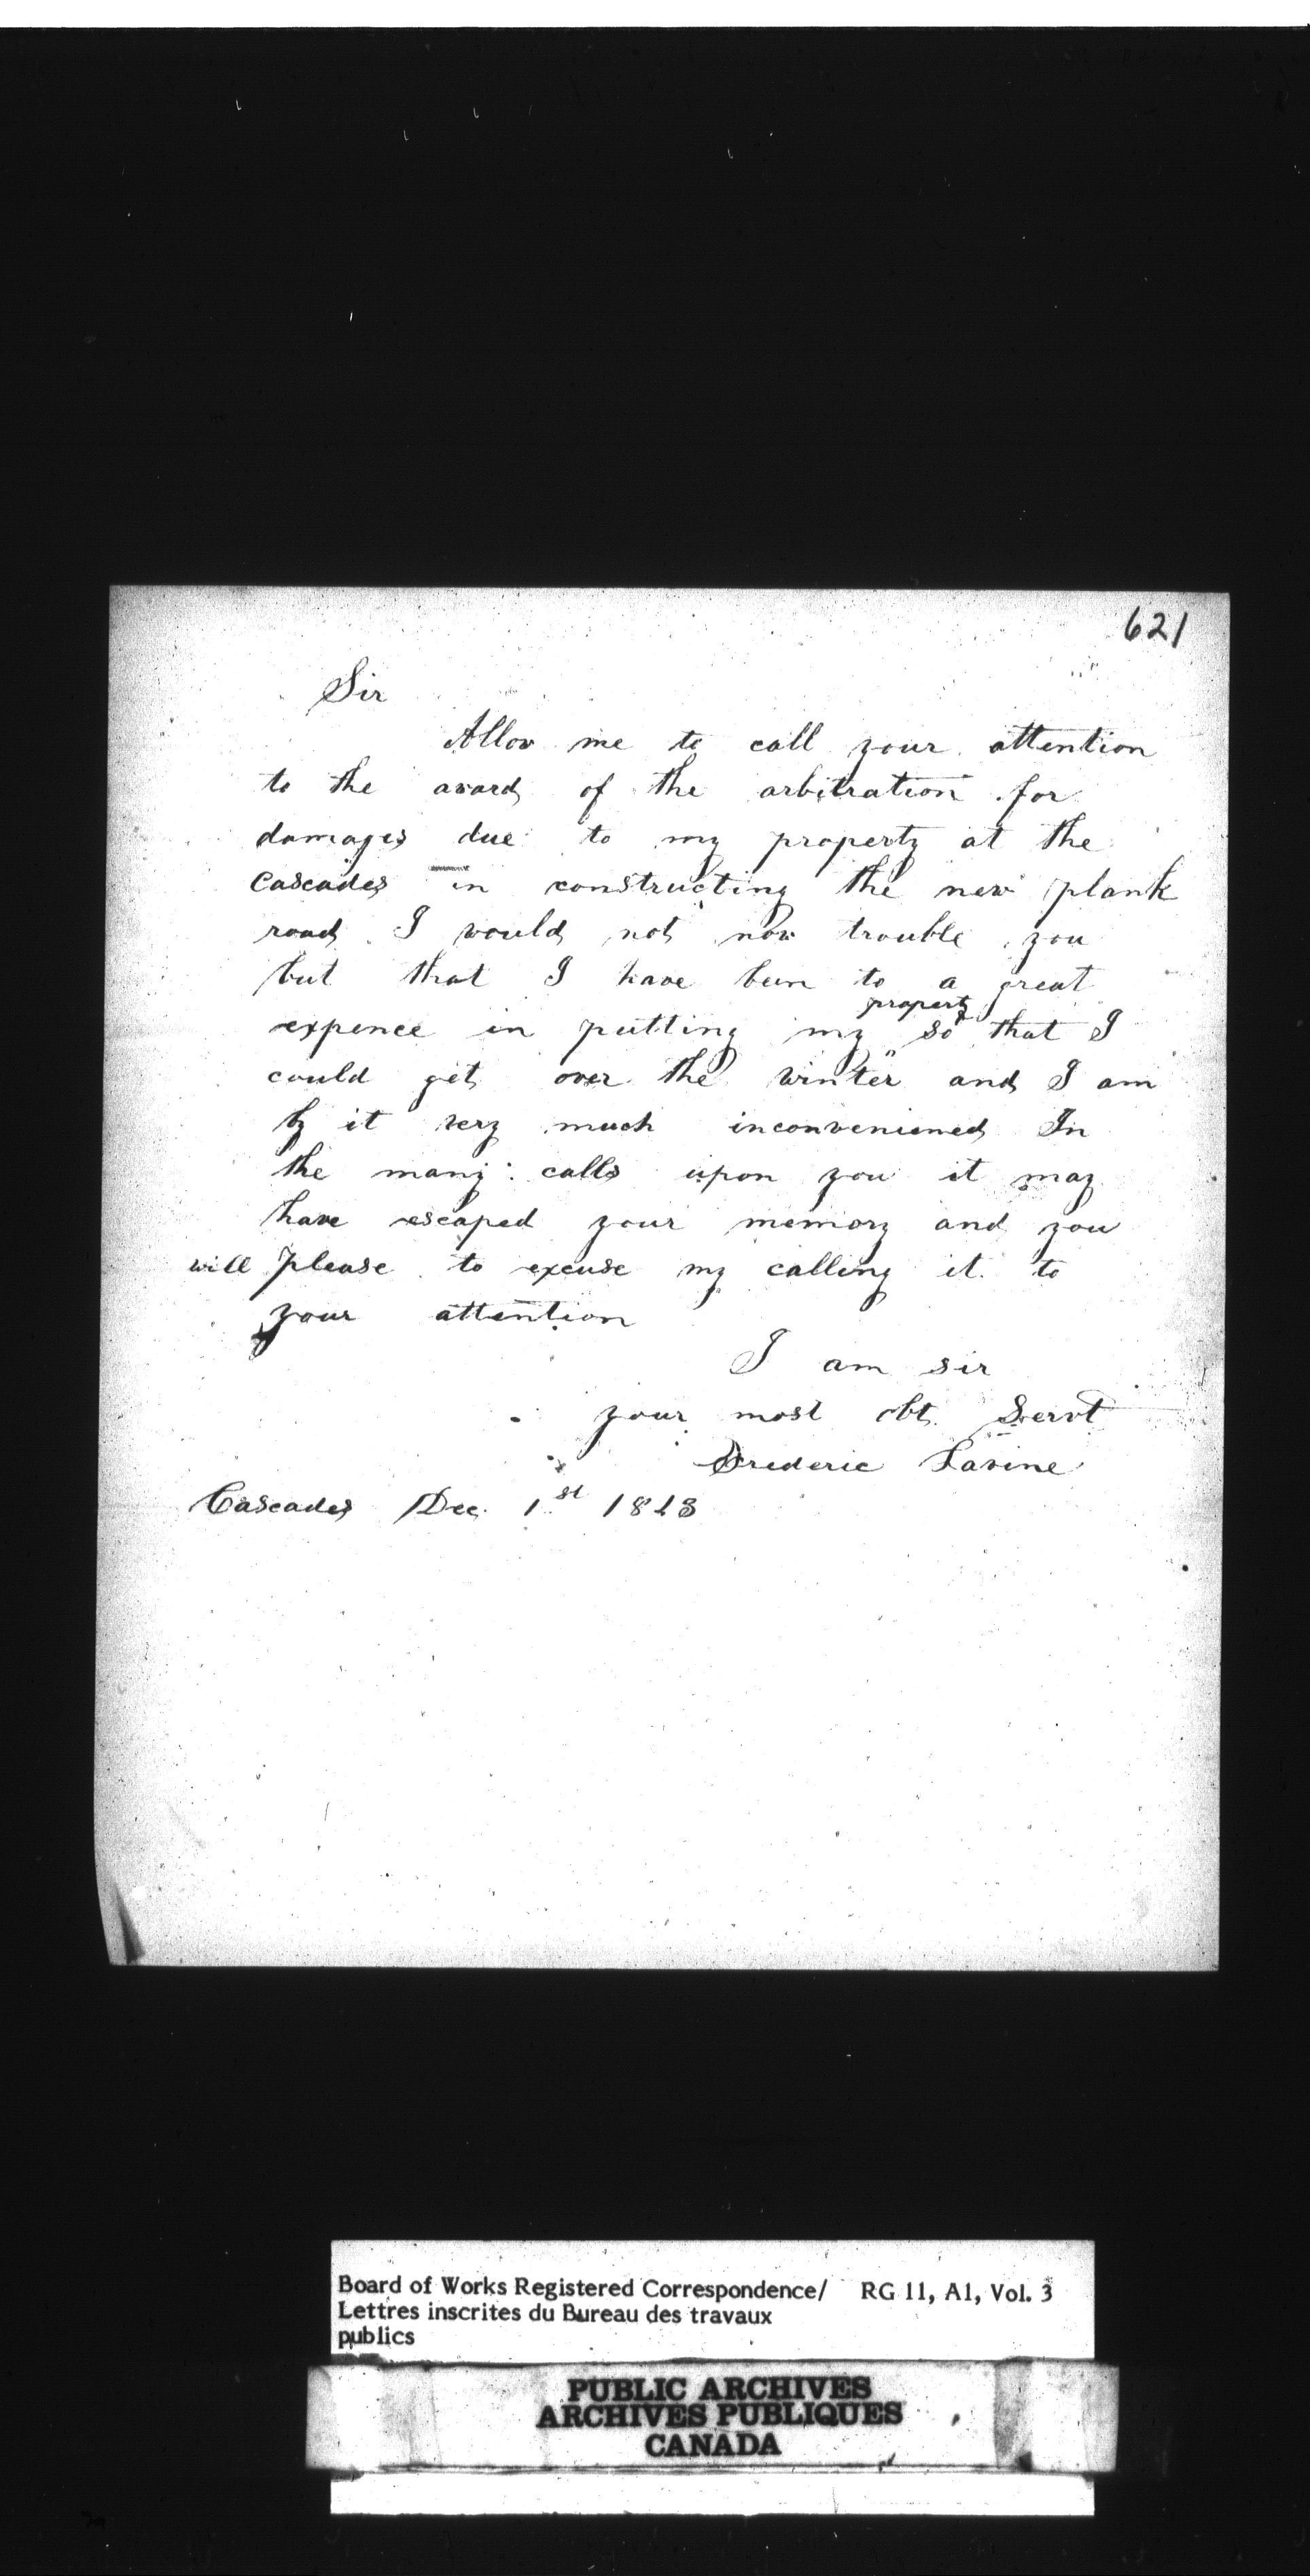 621
Sir
Allow me to call your attention
to the award of the arbitration for
damages due to my property at the
Cascades in constructing the new plank
road I would not now trouble you
but that I have been to a great
property
expence in putting my so that I
could get over the winter and I am
by it very much inconvenienced In
the many calls upon you it may
have escaped your memory and you
will please to excuse my calling it to
your attention
I am sir
your most obt. Servt
Frederic
Cascades Dec. 1st
Board of Works Registered Correspondence/ RG 11, A1, Vol. 3
Lettres inscrites du Bureau des travaux
publics
PUBLIC ARCHIVES
ARCHIVES PUBLIQUES
CANADA